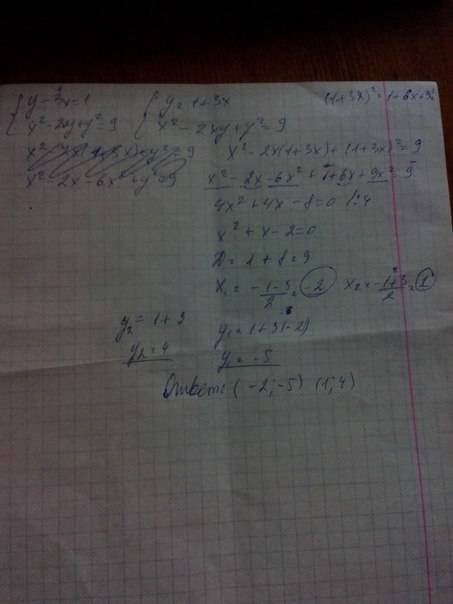 { y - 3x = 1
{ x² - 2xy + y² = 9
x² - 2x - 6x² + y² = 9
{ y = 1 + 3x
{ x² - 2xy + y² = 9
(1+3x)² = 1 + 6x + 9x²
x² - 2x(1+3x) + (1+3x)² = 9
x² - 2x - 6x² + 1 + 6x + 9x² = 9
4x² + 4x - 8 = 0 /:4
x² + x - 2 = 0
D = 1 + 8 = 9
x₁ = -1-3/2 = -2 x₂ = -1+3/2 = 1
y₂ = 1 + 3 y₁ = 1 + 3(-2)
y₂ = 4 y₁ = -5
Ответ: (-2; -5) (1; 4)